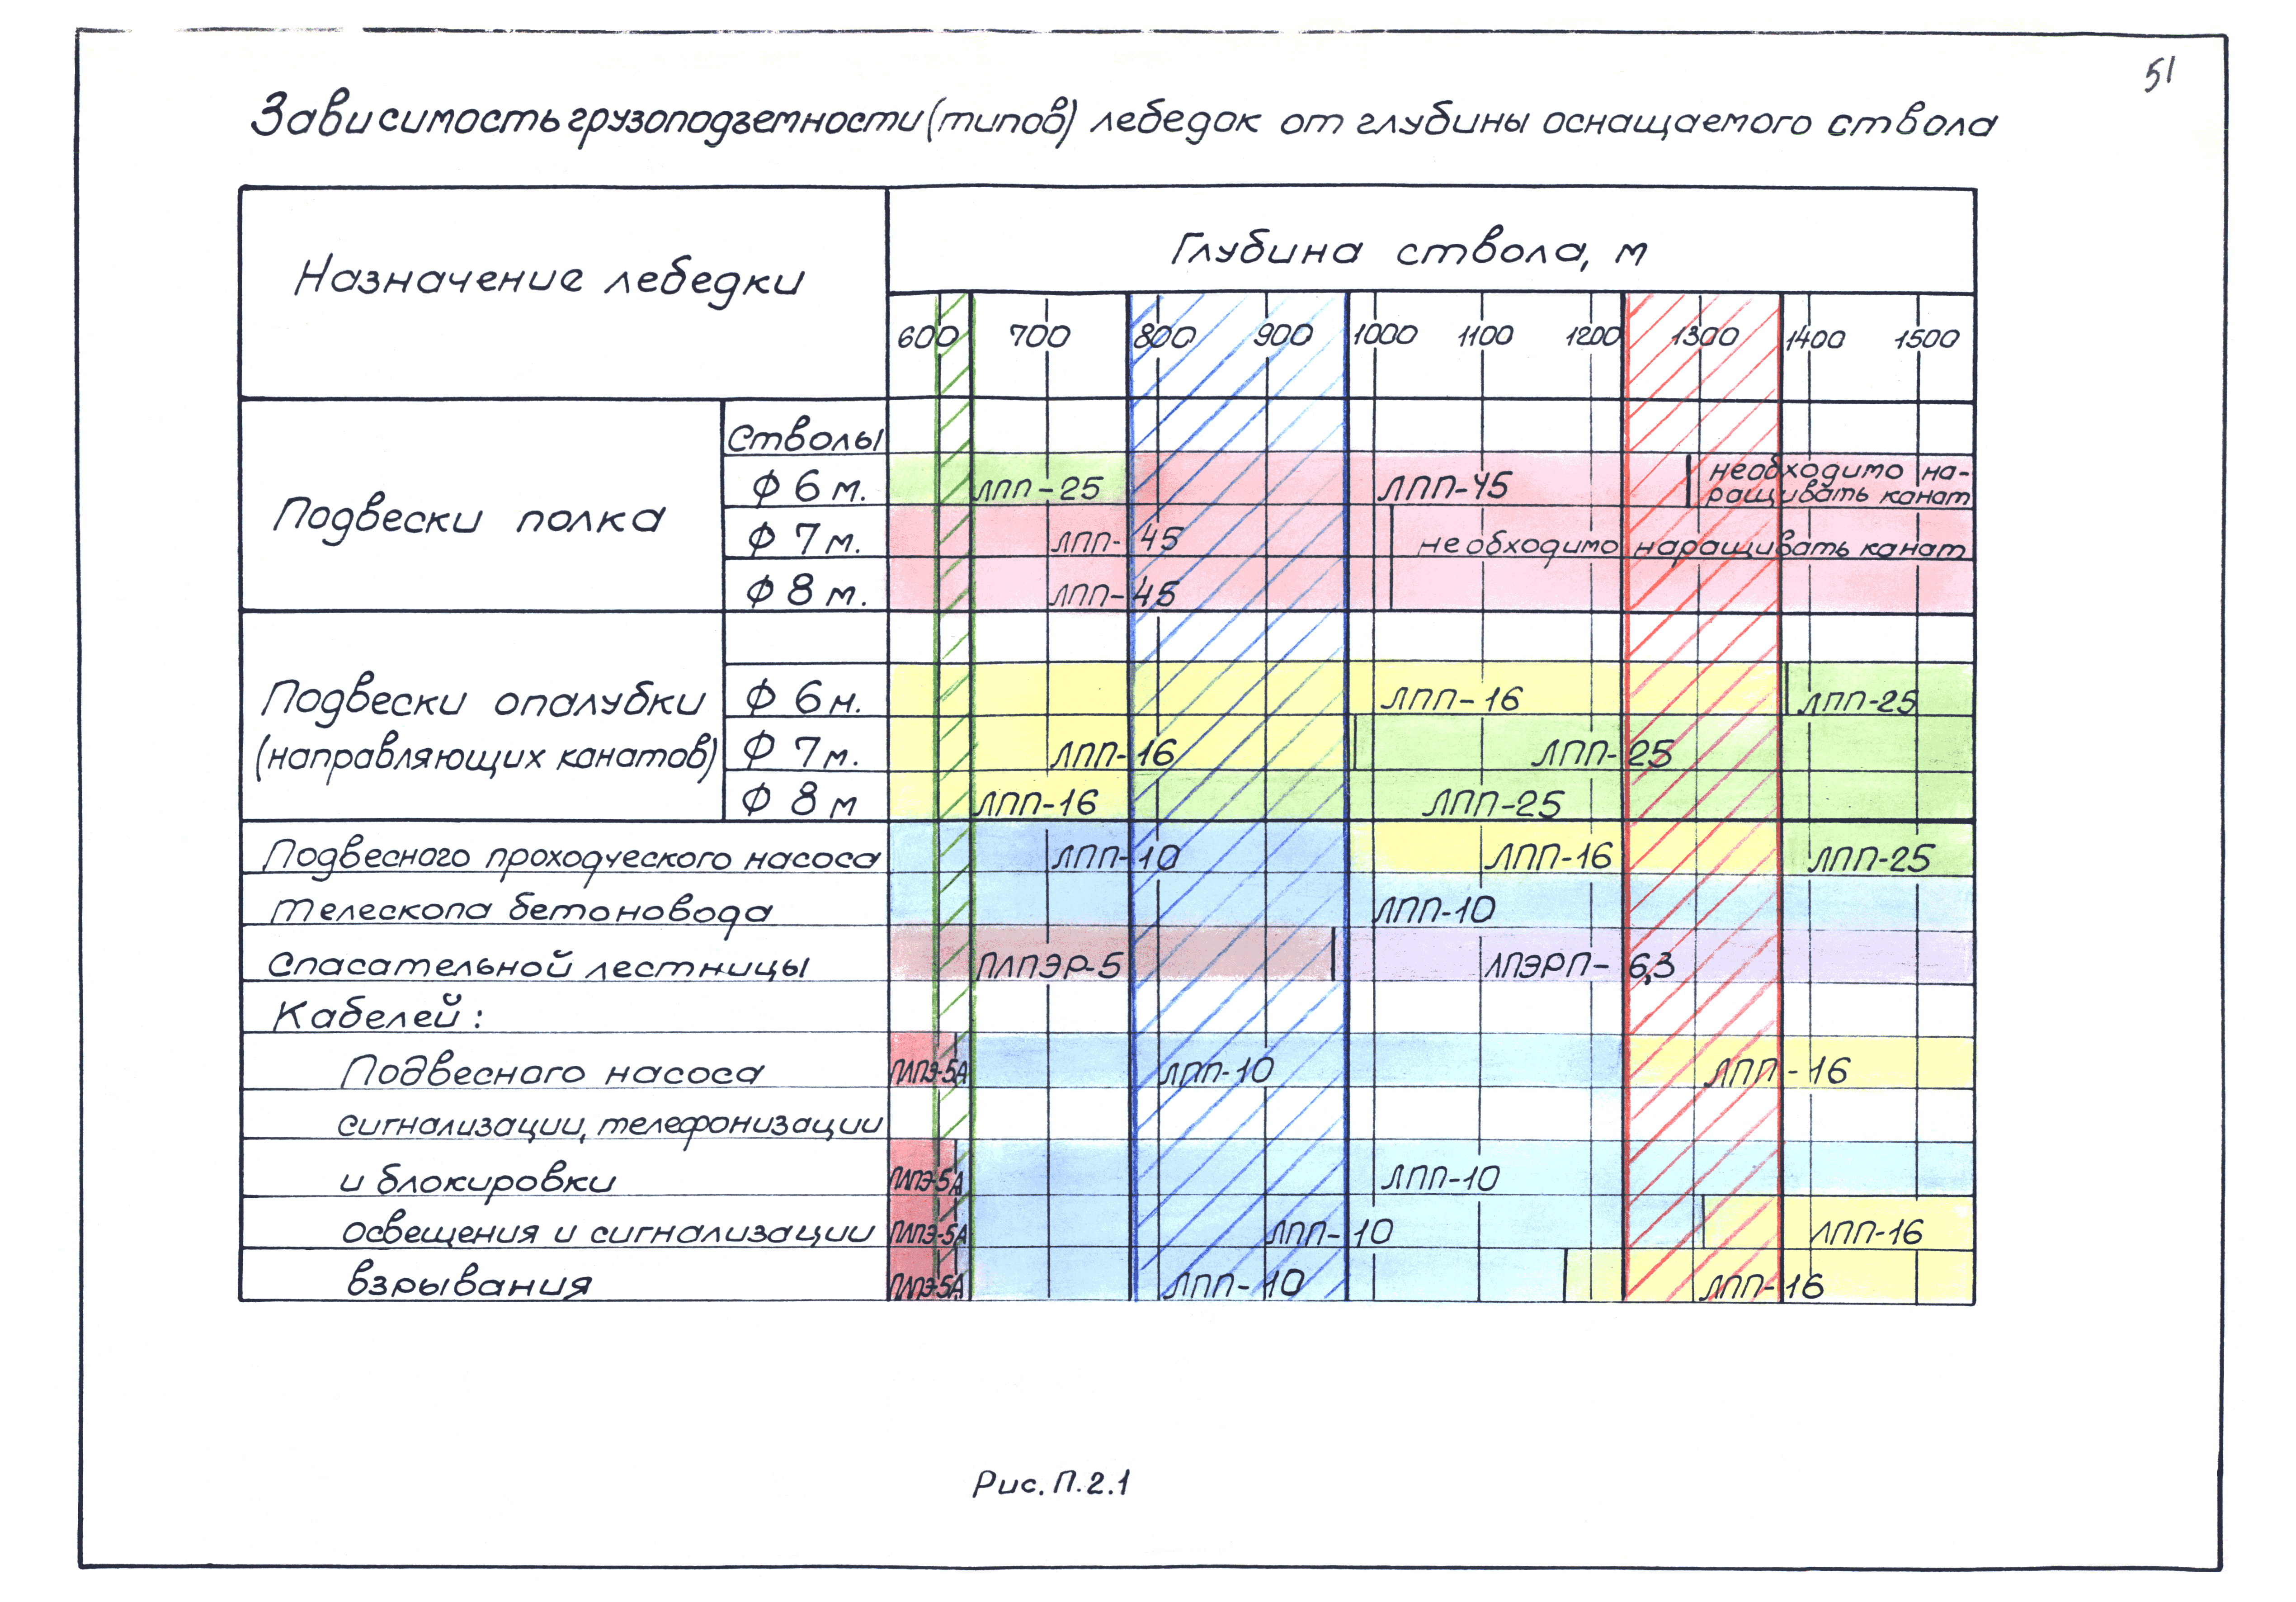 51
Зависимость грузоподземности (типов) лебедок от глубины оснащаемого ствола
Назначение лебедки
Глубина ствола, м
600 700 800 900 1000 1100 1200 1300 1400 1500
Подвески полка
Стволы
Ф 6 м. ЛПП-25 ЛПП-45 необходимо на-
ращивать канат
Ф 7 м. ЛПП-45 необходимо наращивать канат
Ф 8 м. ЛПП-45
Подвески опалубки
(направляющих канатов)
Ф 6 м. ЛПП-16 ЛПП-25
Ф 7 м. ЛПП-16 ЛПП-25
Ф 8 м ЛПП-16 ЛПП-25
Подвесного проходческого насоса ЛПП-10 ЛПП-16 ЛПП-25
Телескопа бетоновода ЛПП-10
Спасательной лестницы ПЛПЭР-5 ЛПЭРП-6,3
Кабелей:
Подвесного насоса ПЛПЭ-5А ЛПП-10 ЛПП-16
сигнализации, телефонизации
и блокировки ПЛПЭ-5А ЛПП-10
освещения и сигнализации ПЛПЭ-5А ЛПП-10 ЛПП-16
взрывания ПЛПЭ-5А ЛПП-10 ЛПП-16
Рис. П.2.1